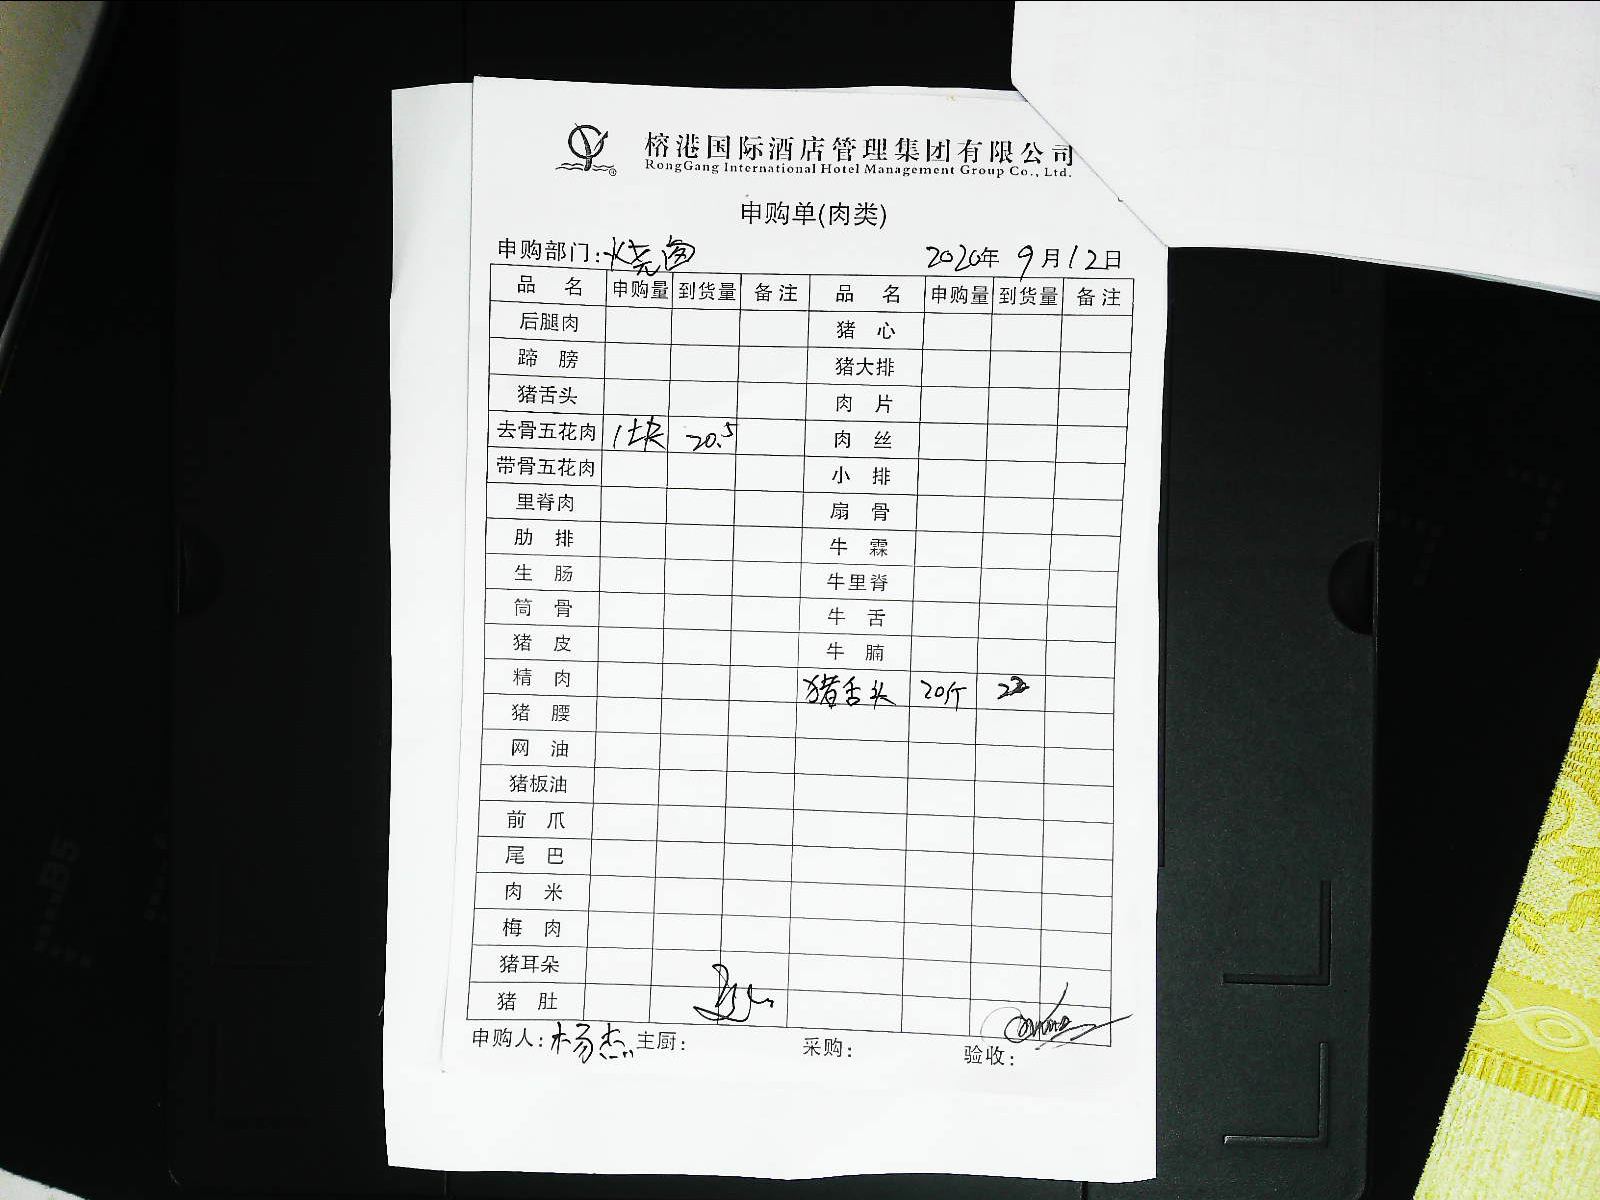 榕港国际酒店管理集团有限公司
RongGang International Hotel Management Group Co., Ltd.
申购单(肉类)
申购部门: 烧卤 2020年 9月12日
品 名 申购量 到货量 备注 品 名 申购量 到货量 备注
后腿肉 猪 心
蹄 膀 猪大排
猪舌头 肉 片
去骨五花肉 1块 20.5 肉 丝
带骨五花肉 小 排
里脊肉 扇 骨
肋 排 牛 霖
生 肠 牛里脊
筒 骨 牛 舌
猪 皮 牛 腩
精 肉 猪舌头 20斤 22
猪 腰
网 油
猪板油
前 爪
尾 巴
肉 米
梅 肉
猪耳朵
猪 肚
申购人: 杨杰 主厨: 采购: 验收: